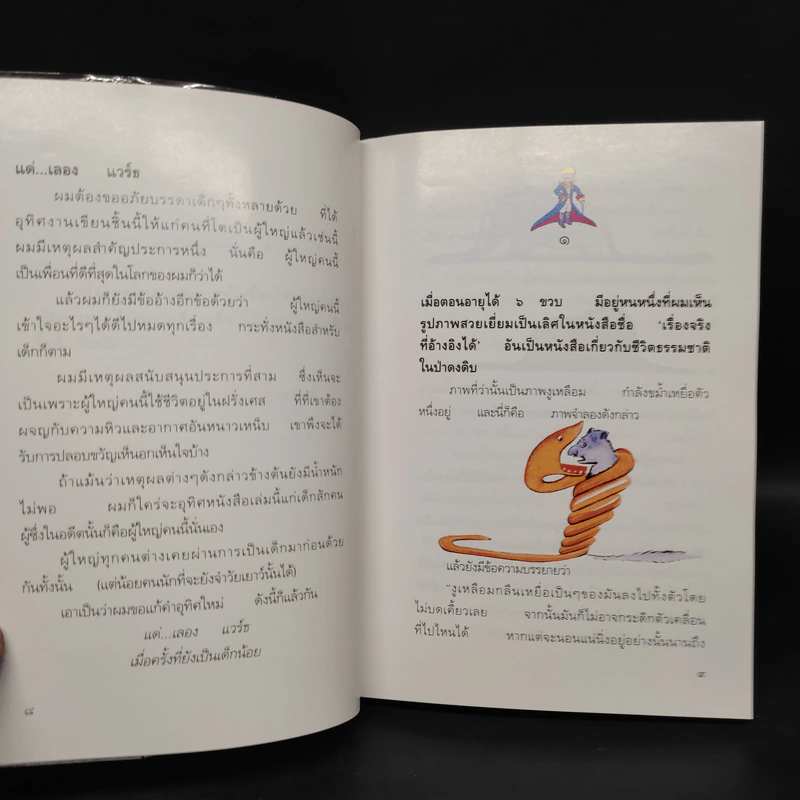 แด่...เลออง แวร์ธ
ผมต้องขออภัยบรรดาเด็กๆทั้งหลายด้วย ที่ได้
อุทิศงานเขียนชิ้นนี้ให้แก่คนที่โตเป็นผู้ใหญ่แล้วเช่นนี้
ผมมีเหตุผลสำคัญประการหนึ่ง นั่นคือ ผู้ใหญ่คนนี้
เป็นเพื่อนที่ดีที่สุดในโลกของผมก็ว่าได้
แล้วผมก็ยังมีข้ออ้างอีกข้อด้วยว่า ผู้ใหญ่คนนี้
เข้าใจอะไรๆได้ดีไปหมดทุกเรื่อง กระทั่งหนังสือสำหรับ
เด็กก็ตาม
ผมมีเหตุผลสนับสนุนประการที่สาม ซึ่งเห็นจะ
เป็นเพราะผู้ใหญ่คนนี้ใช้ชีวิตอยู่ในฝรั่งเศส ที่ที่เขาต้อง
ผจญกับความหิวและอากาศอันหนาวเหน็บ เขาพึงจะได้
รับการปลอบขวัญเห็นอกเห็นใจบ้าง
ถ้าแม้นว่าเหตุผลต่างๆดังกล่าวข้างต้นยังมีน้ำหนัก
ไม่พอ ผมก็ใคร่จะอุทิศหนังสือเล่มนี้แก่เด็กสักคน
ผู้ซึ่งในอดีตนั้นก็คือผู้ใหญ่คนนี้นั่นเอง
ผู้ใหญ่ทุกคนต่างเคยผ่านการเป็นเด็กมาก่อนด้วย
กันทั้งนั้น (แต่น้อยคนนักที่จะยังจำวัยเยาว์นั้นได้)
เอาเป็นว่าผมขอแก้คำอุทิศใหม่ ดังนี้ก็แล้วกัน
แด่...เลออง แวร์ธ
เมื่อครั้งที่ยังเป็นเด็กน้อย
๘
๑
เมื่อตอนอายุได้ ๖ ขวบ มีอยู่หนหนึ่งที่ผมเห็น
รูปภาพสวยเยี่ยมเป็นเลิศในหนังสือชื่อ "เรื่องจริง
ที่อ้างอิงได้" อันเป็นหนังสือเกี่ยวกับชีวิตธรรมชาติ
ในป่าดงดิบ
ภาพที่ว่านั้นเป็นภาพงูเหลือม กำลังขม้ำเหยื่อตัว
หนึ่งอยู่ และนี่ก็คือ ภาพจำลองดังกล่าว
แล้วยังมีข้อความบรรยายว่า
"งูเหลือมกลืนเหยื่อเป็นๆของมันลงไปทั้งตัวโดย
ไม่บดเคี้ยวเลย จากนั้นมันก็ไม่อาจกระดิกตัวเคลื่อน
ที่ไปไหนได้ หากแต่จะนอนแน่นิ่งอยู่อย่างนั้นนานถึง
๙